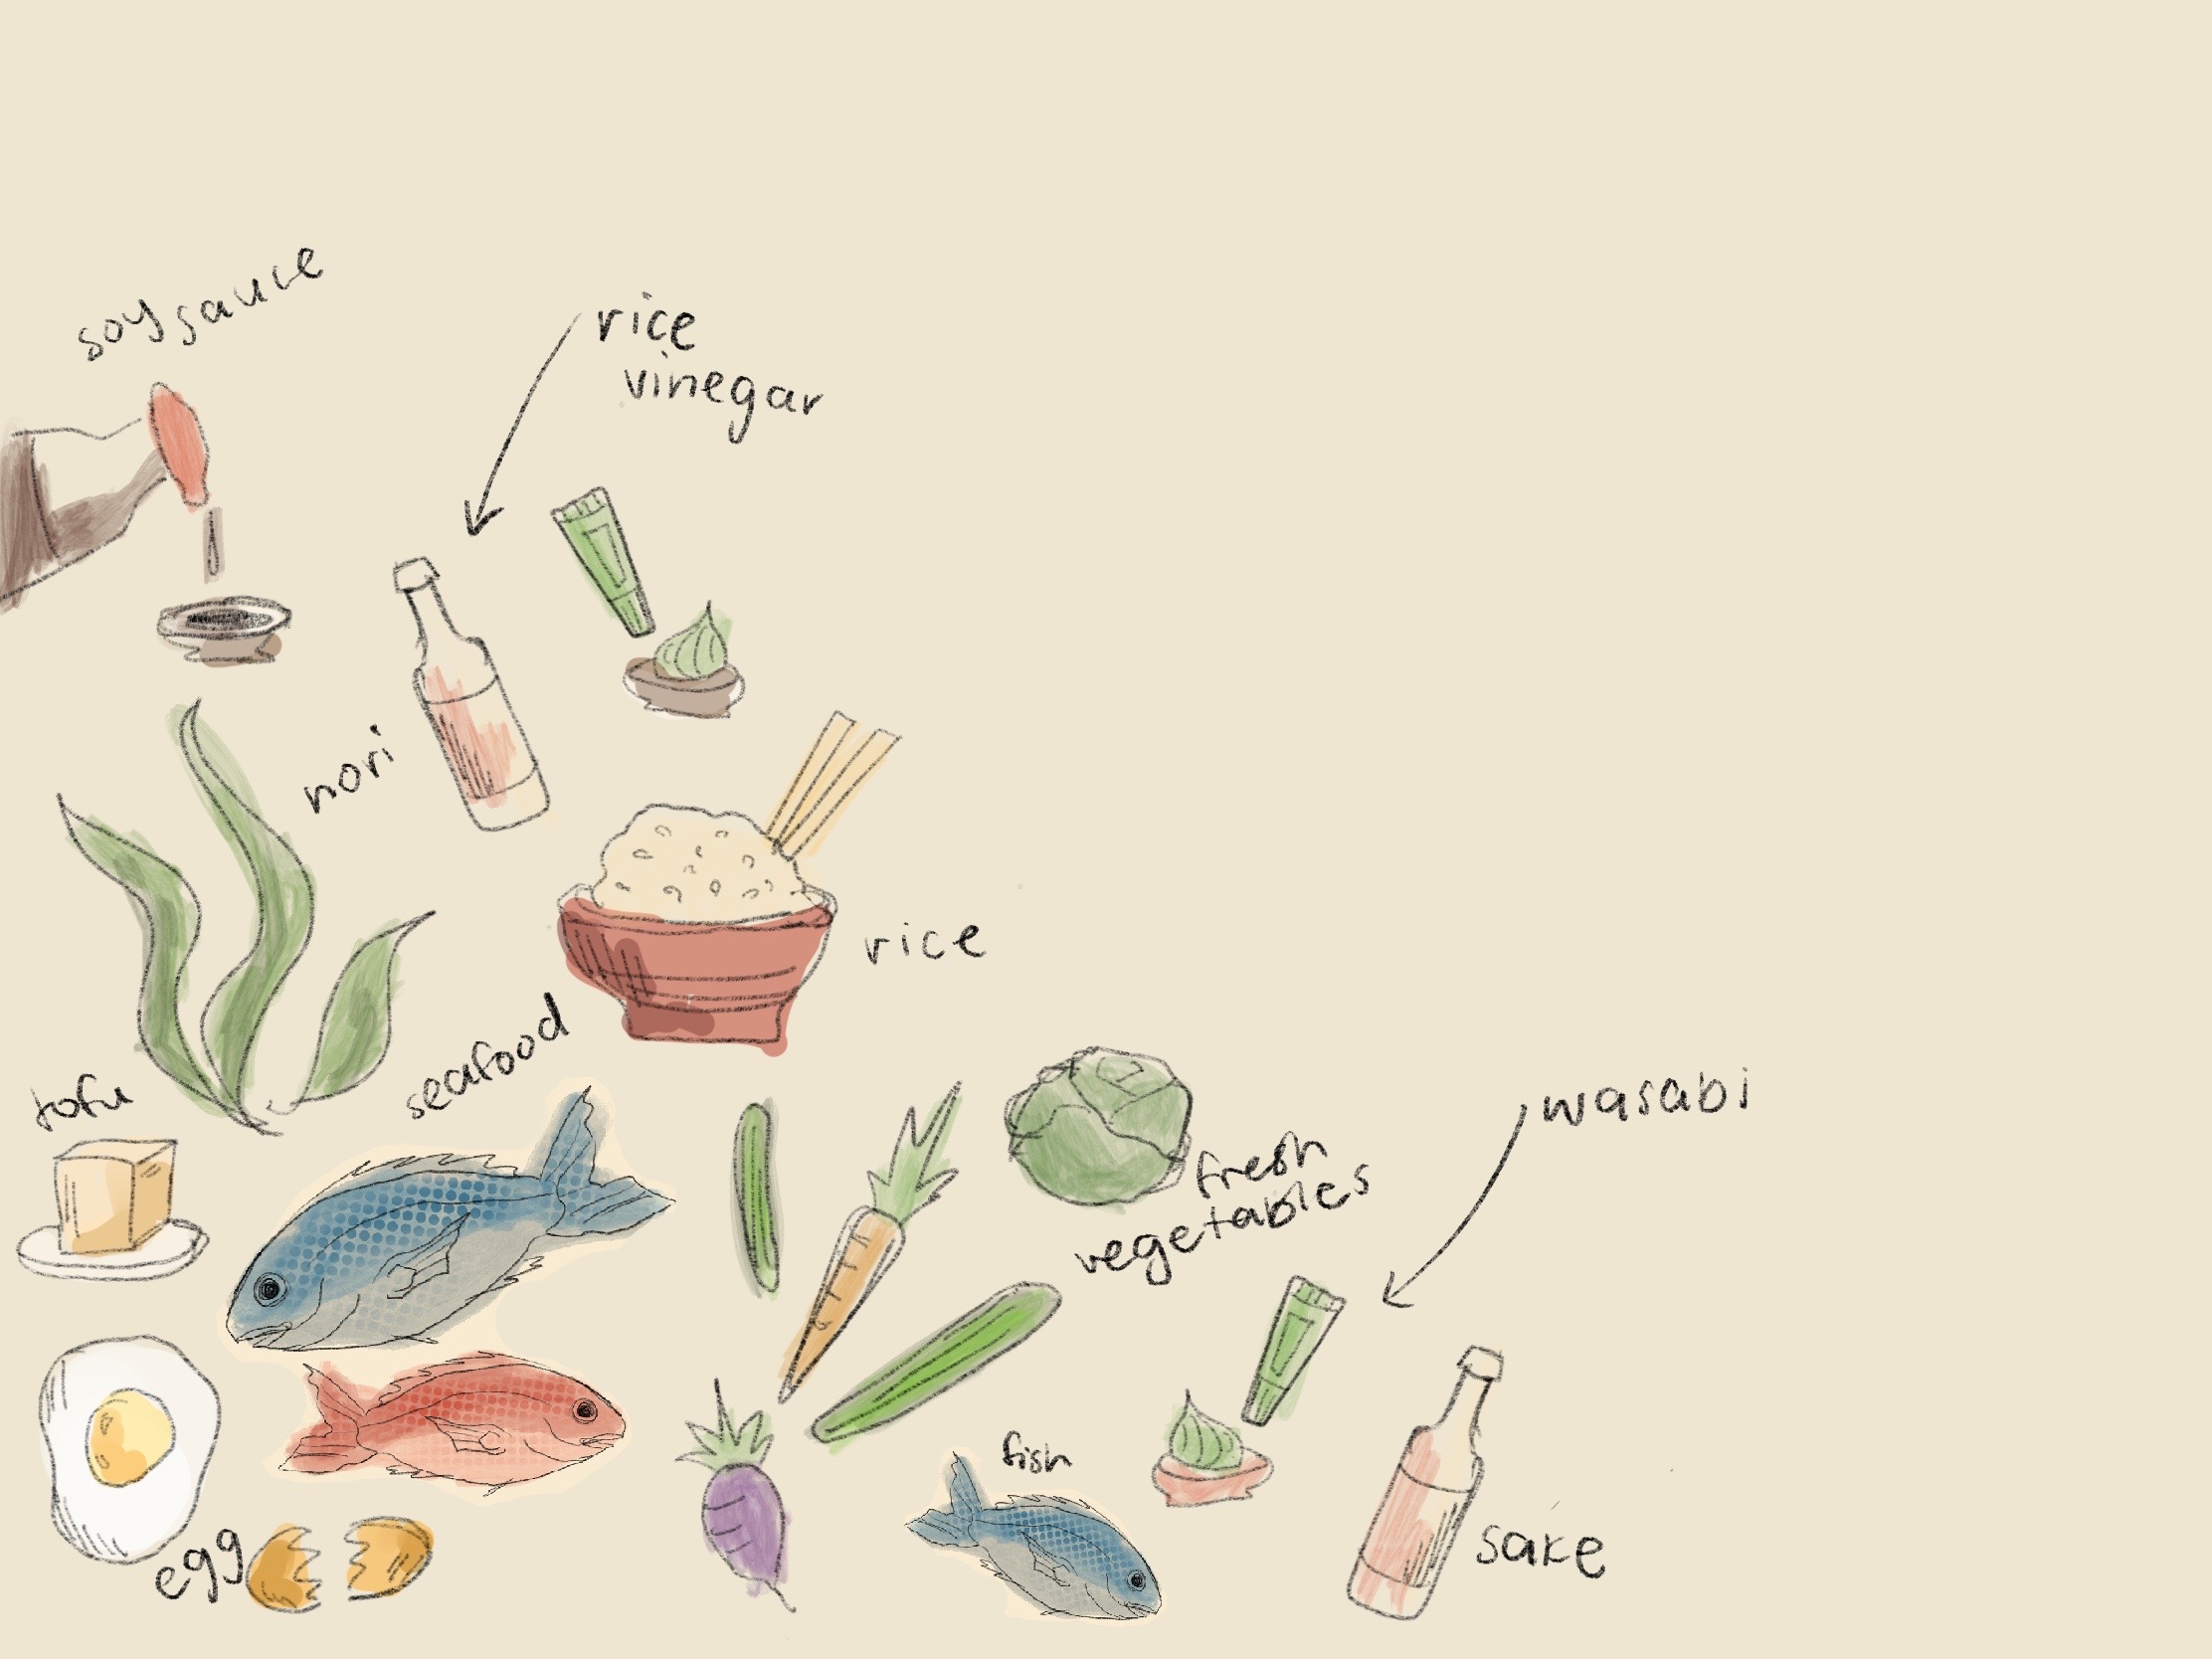 soy sauce
rice
vinegar
nori
rice
seafood
tofu
wasabi
fresh
vegetables
fish
sake
egg